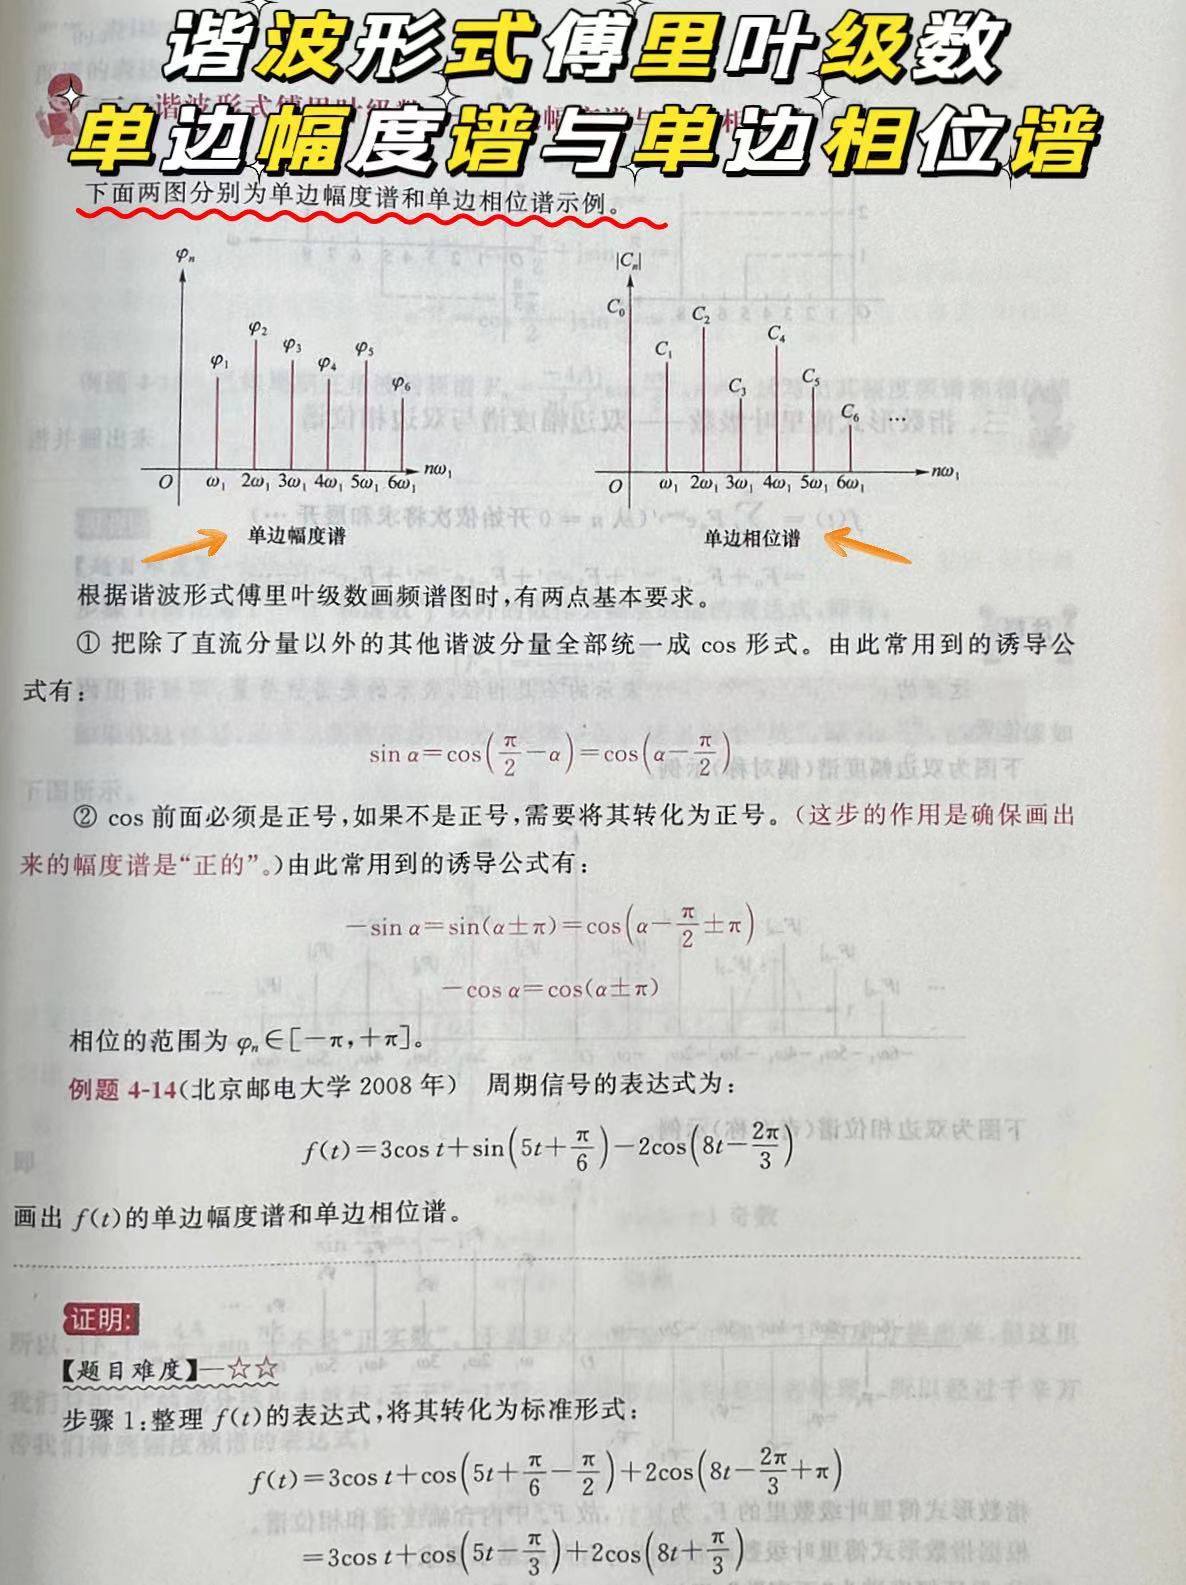 谐波形式傅里叶级数
单边幅度谱与单边相位谱
下面两图分别为单边幅度谱和单边相位谱示例。
φₙ
φ₁ φ₂ φ₃ φ₄ φ₅ φ₆
O ω₁ 2ω₁ 3ω₁ 4ω₁ 5ω₁ 6ω₁ nω₁
单边幅度谱
|Cₙ|
C₀ C₁ C₂ C₃ C₄ C₅ C₆ …
O ω₁ 2ω₁ 3ω₁ 4ω₁ 5ω₁ 6ω₁ nω₁
单边相位谱
根据谐波形式傅里叶级数画频谱图时,有两点基本要求。
① 把除了直流分量以外的其他谐波分量全部统一成 cos 形式。由此常用到的诱导公
式有:
sin α=cos(π/2−α)=cos(α−π/2)
② cos 前面必须是正号,如果不是正号,需要将其转化为正号。(这步的作用是确保画出
来的幅度谱是“正的”。)由此常用到的诱导公式有:
−sin α=sin(α±π)=cos(α−π/2±π)
−cos α=cos(α±π)
相位的范围为 φₙ∈[−π,+π]。
例题 4-14(北京邮电大学 2008 年) 周期信号的表达式为:
f(t)=3cos t+sin(5t+π/6)−2cos(8t−2π/3)
画出 f(t)的单边幅度谱和单边相位谱。
证明:
【题目难度】一☆☆
步骤 1:整理 f(t)的表达式,将其转化为标准形式:
f(t)=3cos t+cos(5t+π/6−π/2)+2cos(8t−2π/3+π)
=3cos t+cos(5t−π/3)+2cos(8t+π/3)